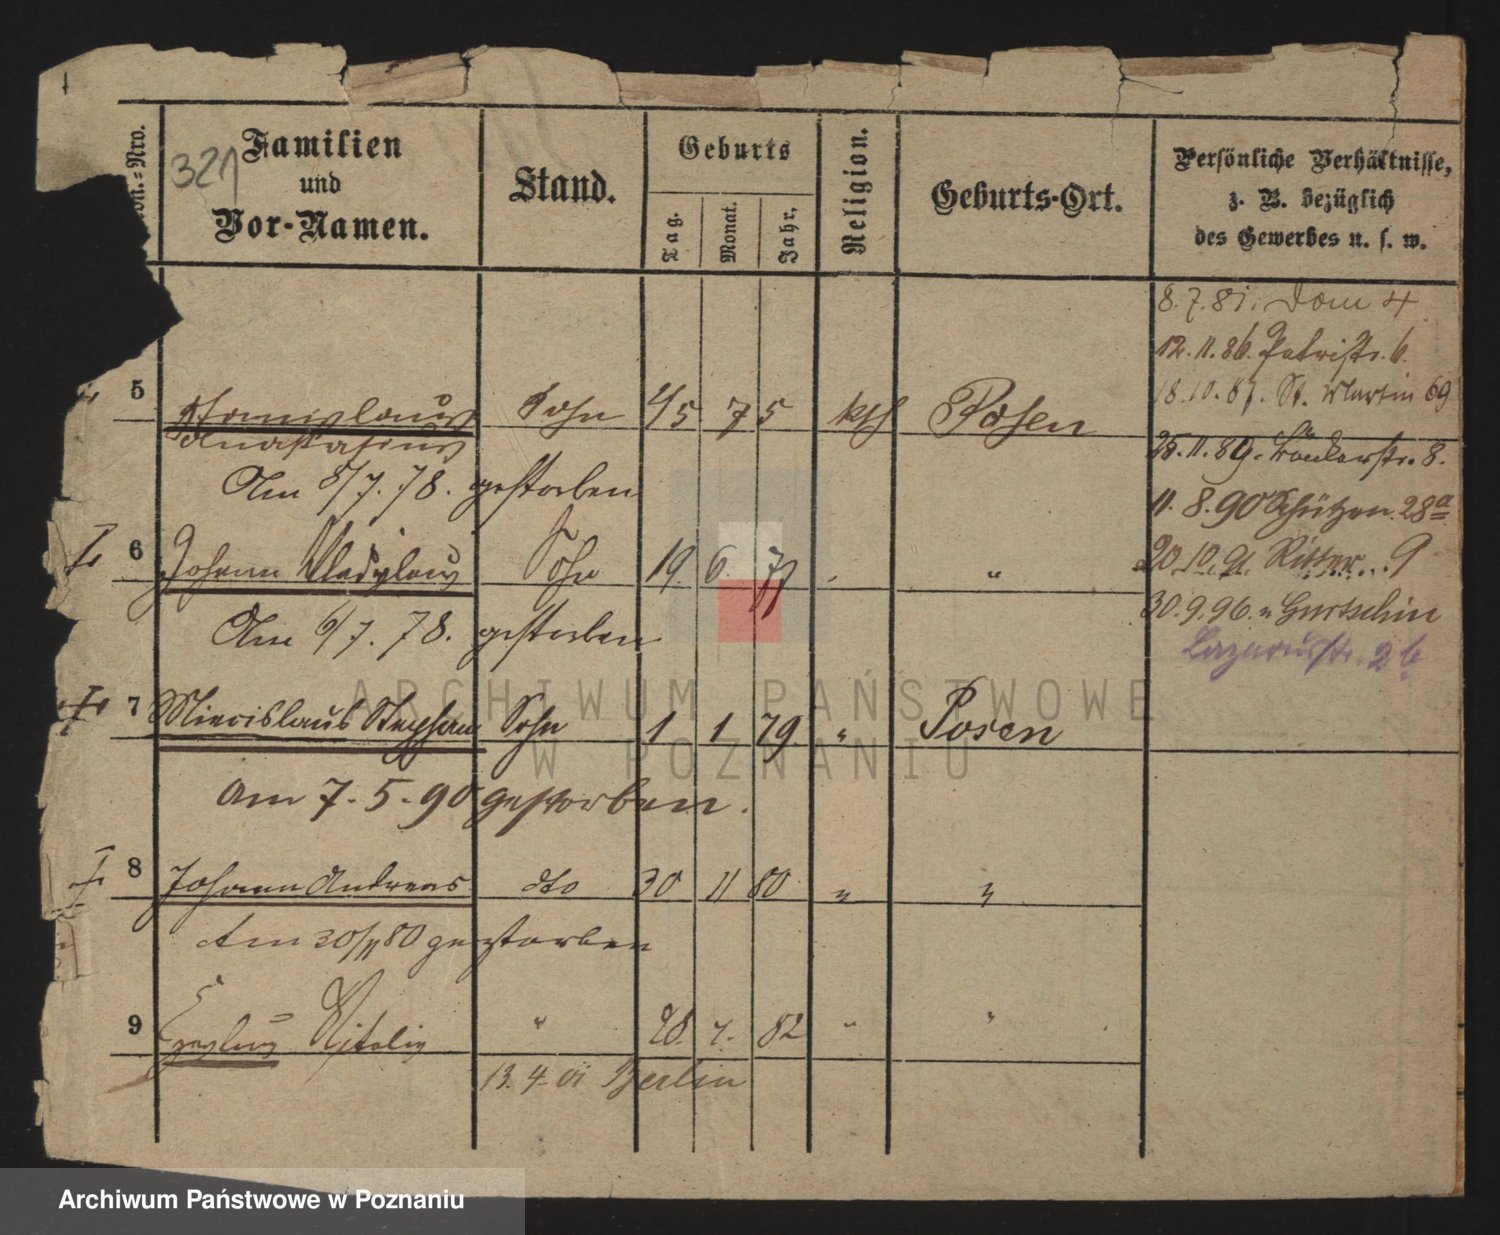 321
Familien
und
Vor-Namen.
Stand.
Geburts
Tag.
Monat.
Jahr.
Religion.
Geburts-Ort.
Persönliche Verhältnisse,
z. B. bezüglich
des Gewerbes u. s. w.
8.7.81. Dom 4
12.11.86. Petristr. 6.
18.10.87. St. Martin 69
25.11.89. Bäckerstr. 8.
11.8.90 Schützen 28a
20.10.91. Ritter 9
30.9.96. n Gurtschin
Lazarusstr. 2b
5 Stanislaus Sohn 4/5 75 kth Posen
Anastasius
Am 8/7.78. gestorben
6 Johann Sohn 19. 6. 77 "
Am 6/7.78. gestorben
7 Miecislaus Stephan Sohn 1 1 79. " Posen
am 7.5.90 gestorben.
8 Johann Andreas dto 30 11 80 " "
Am 30/11 80 gestorben
9 Vitalis " 28. 4. 82 " "
13.4.01 Berlin
ARCHIWUM PAŃSTWOWE
W POZNANIU
Archiwum Państwowe w Poznaniu